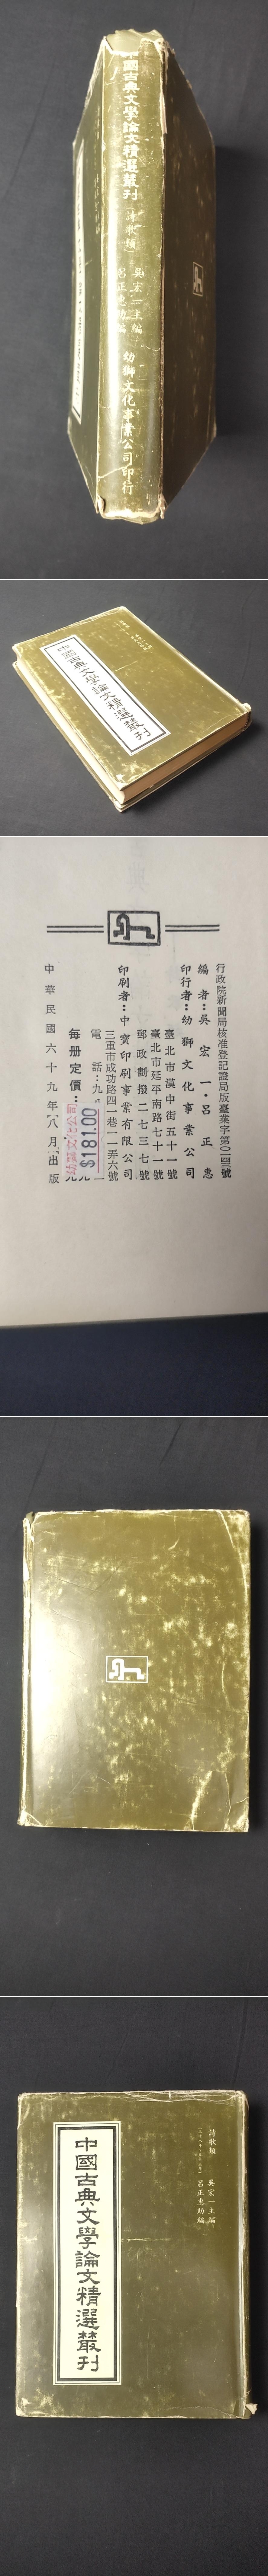 中國古典文學論文精選叢刊
〔詩歌類〕
吳宏一主編
呂正惠助編
幼獅文化事業公司印行
中國古典文學論文精選叢刊
行政院新聞局核准登記證局版臺業字第〇一四三號
編者:吳宏一・呂正惠
印行者:幼獅文化事業公司
臺北市漢中街五十一號
臺北市延平南路七十一號
郵政劃撥二七三七號
印刷者:中寶印刷事業有限公司
三重市成功路四一巷一一弄六號
電話:九
每册定價:
$181.00
中華民國六十九年八月出版
詩歌類
吳宏一主編
呂正惠助編
中國古典文學論文精選叢刊